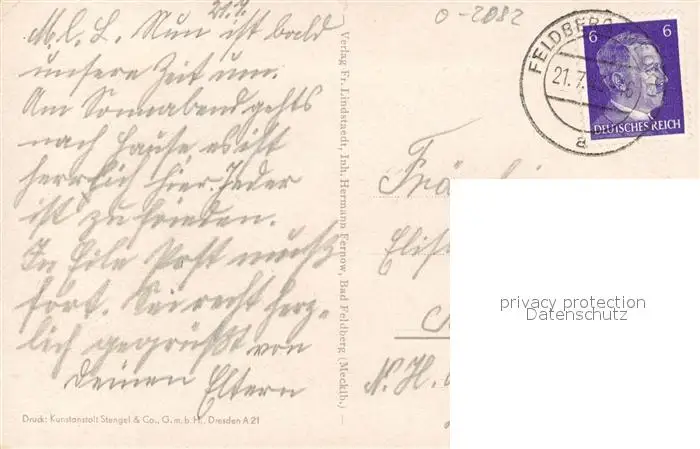 21.7.
M. l. L. Nun ist bald
unsere Zeit um.
Am Sonnabend gehts
nach Hause es ist
herrlich hier. Jeder
ist zufrieden.
In Eile Post muß
fort. Sei recht herz-
lich gegrüßt von
deinen Eltern
Druck: Kunstanstalt Stengel & Co., G.m.b.H., Dresden A 21
Verlag Fr. Lindstaedt, Inh. Hermann Fernow, Bad Feldberg (Mecklb.)
0-2082
FELDBERG
21.7.
a
6 6
DEUTSCHES REICH
Fräu
Elis
N. H.
privacy protection
Datenschutz